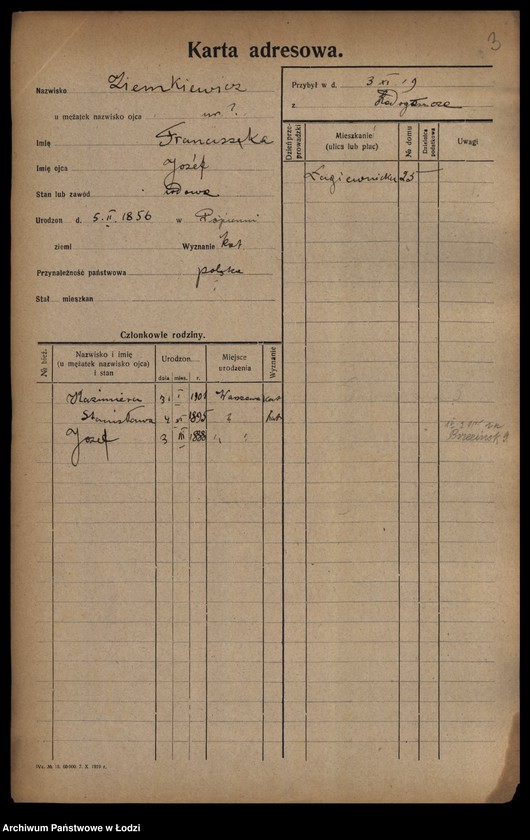 3
Karta adresowa.
Nazwisko Ziemkiewicz
u mężatek nazwisko ojca nr. ?
Imię Franciszka
Imię ojca Józef
Stan lub zawód wdowa
Urodzon d. 5. II. 1856 w
ziemi Wyznanie kat
Przynależność państwowa polska
Stał. mieszkan
Przybył w d. 3 XI 19
z Radogoszcza
Dzień przeprowadzki
Mieszkanie (ulica lub plac)
№ domu
Dzielnica podatkowa
Uwagi
Łagiewnicka 25
Członkowie rodziny.
№ bież.
Nazwisko i imię (u mężatek nazwisko ojca) i stan
Urodzon
data mies. r.
Miejsce urodzenia
Wyznanie
Kazimiera 31 I 1901 Warszawa kat
Stanisława 4 XI 1895 " kat
Józef 3 III 1888 " "
Archiwum Państwowe w Łodzi